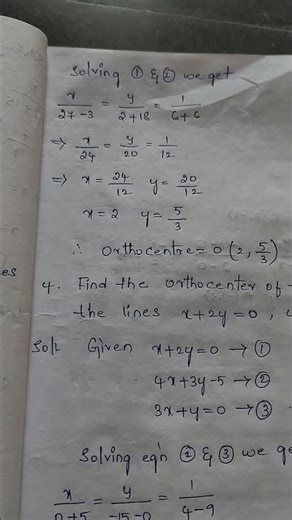 Solving ① & ② we get
x/(27-3) = y/(2+18) = 1/(6+6)
⇒ x/24 = y/20 = 1/12
⇒ x = 24/12 y = 20/12
x = 2 y = 5/3
∴ Orthocentre = O (2, 5/3)
4. Find the orthocenter of
the lines x+2y=0,
Sol: Given x+2y=0 → ①
4x+3y-5 → ②
3x+y=0 → ③
Solving eqn ② & ③ we
x/(0+5) = y/(-15-0) = 1/(4-9)